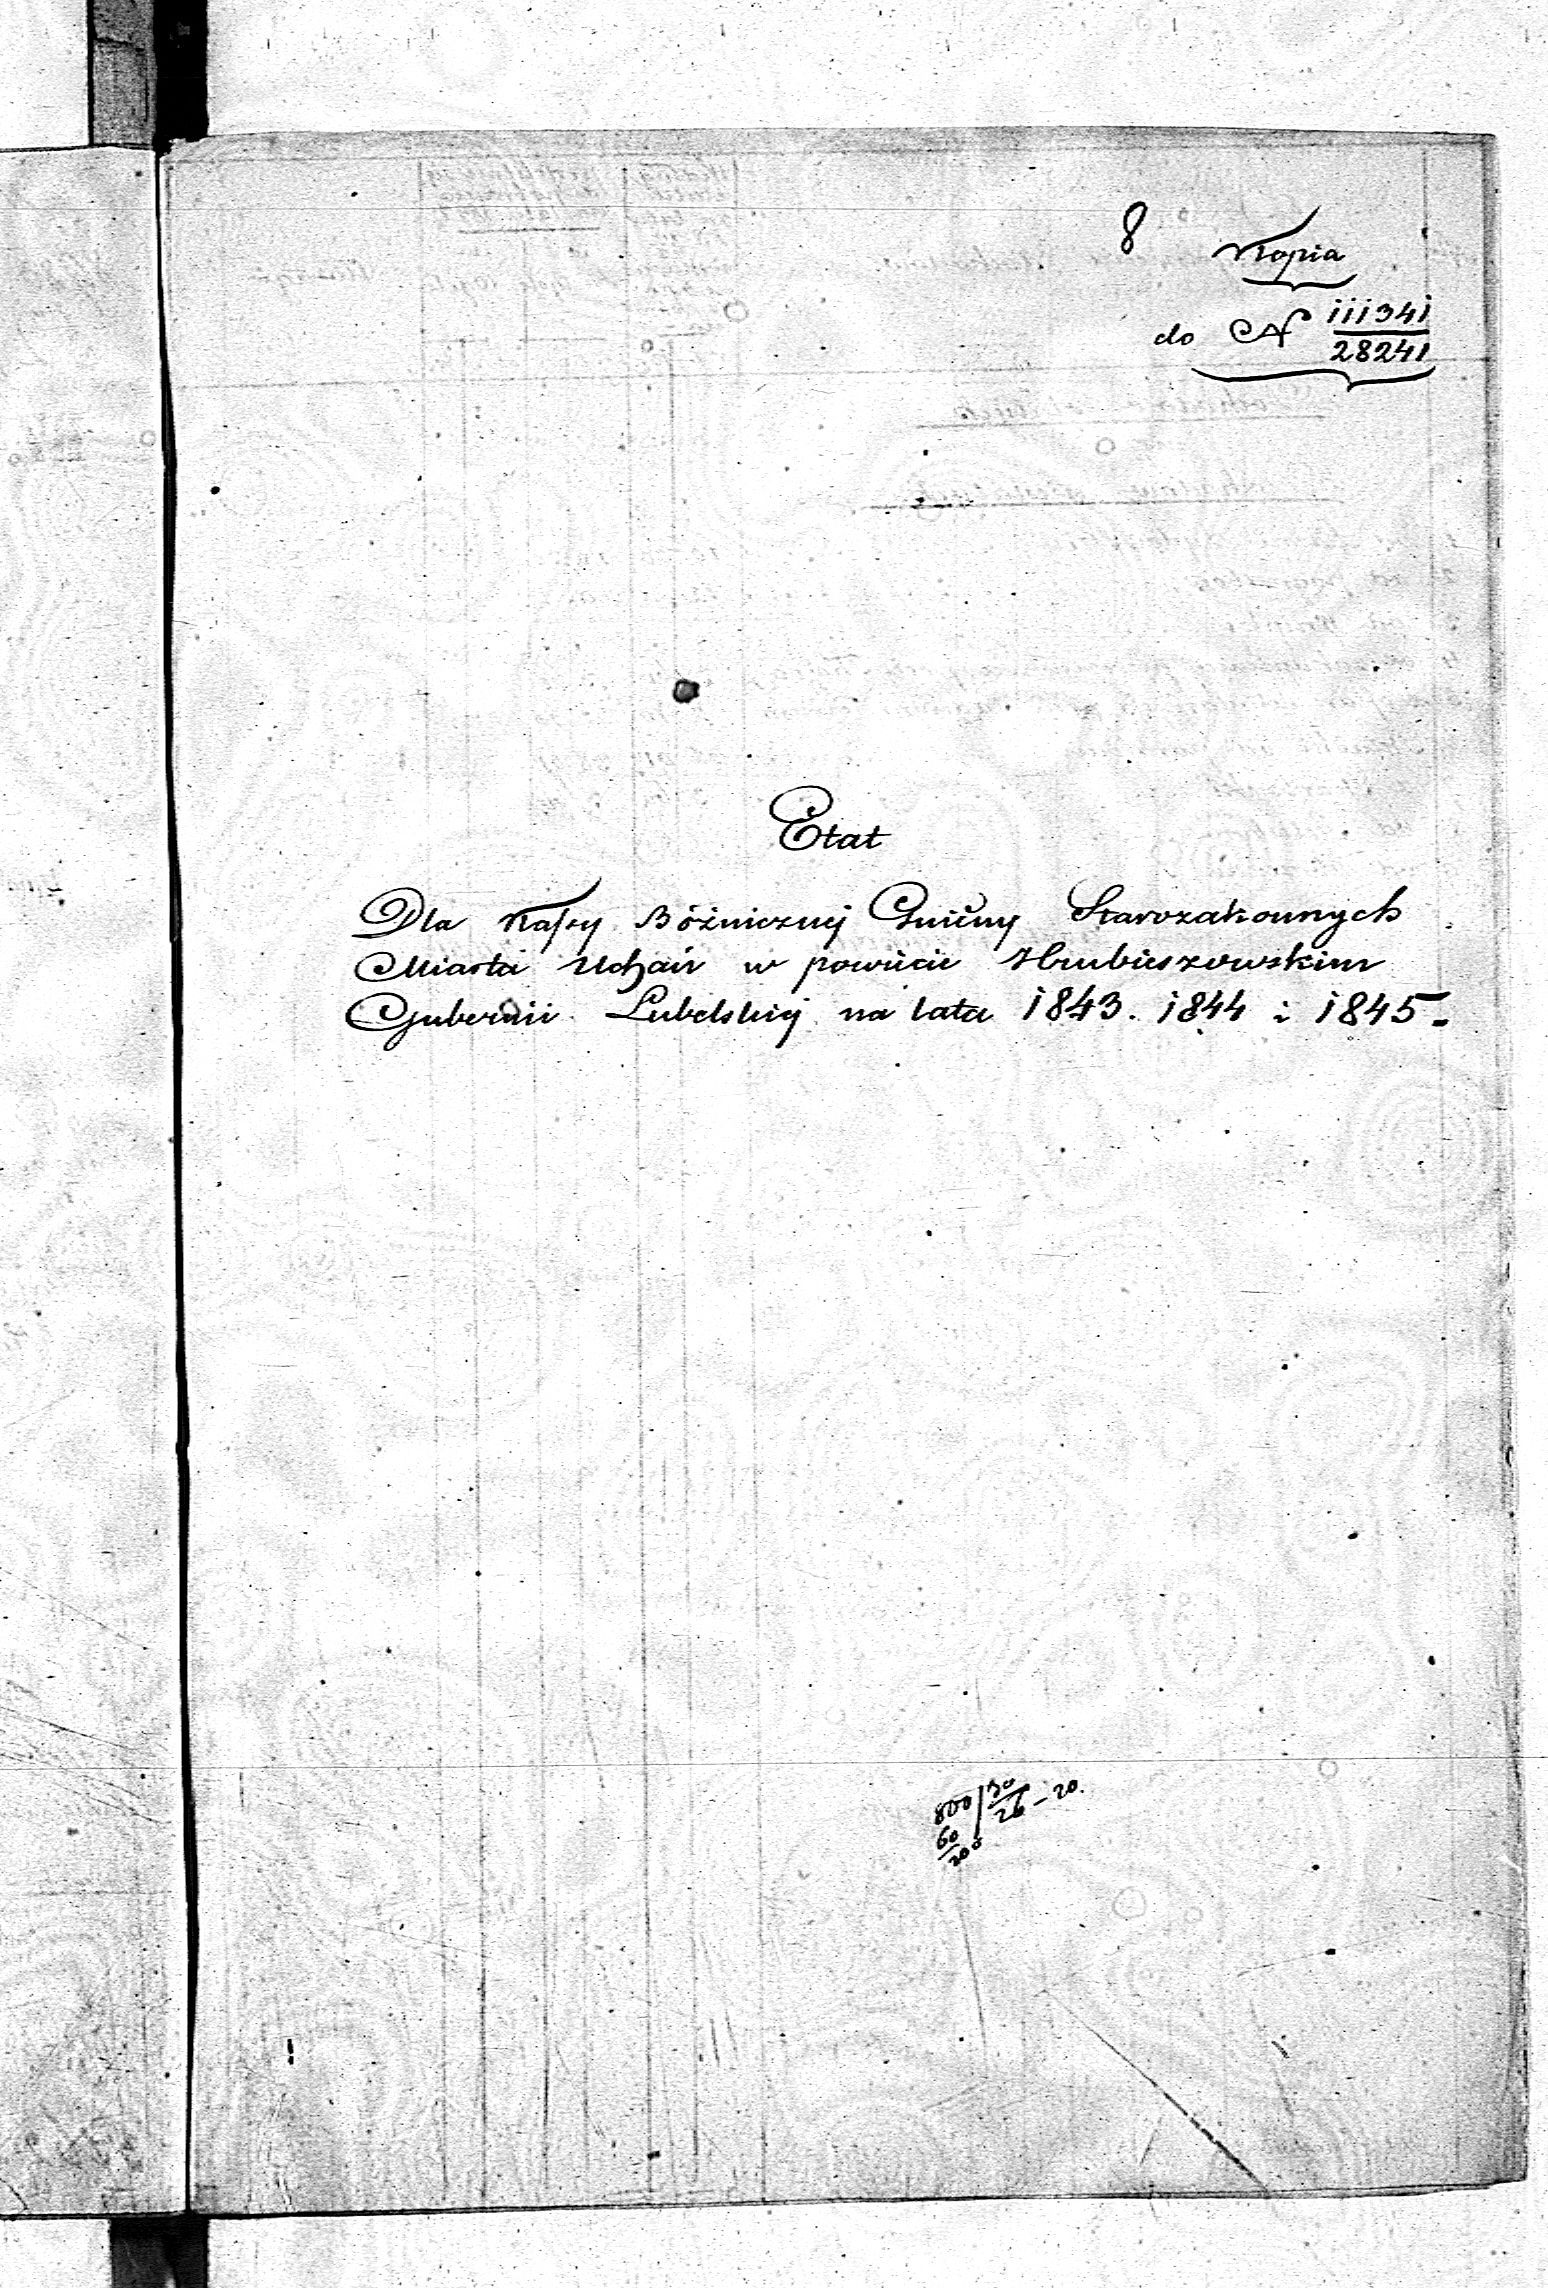 8
Kopia
do N 111341
28241
Etat
Dla Kassy Bóżniczney Gminy Starozakonnych
Miasta Uchań w powiecie Hrubieszowskim
Gubernii Lubelskiej na lata 1843. 1844 i 1845.
800 / 30
60 26 – 20.
200